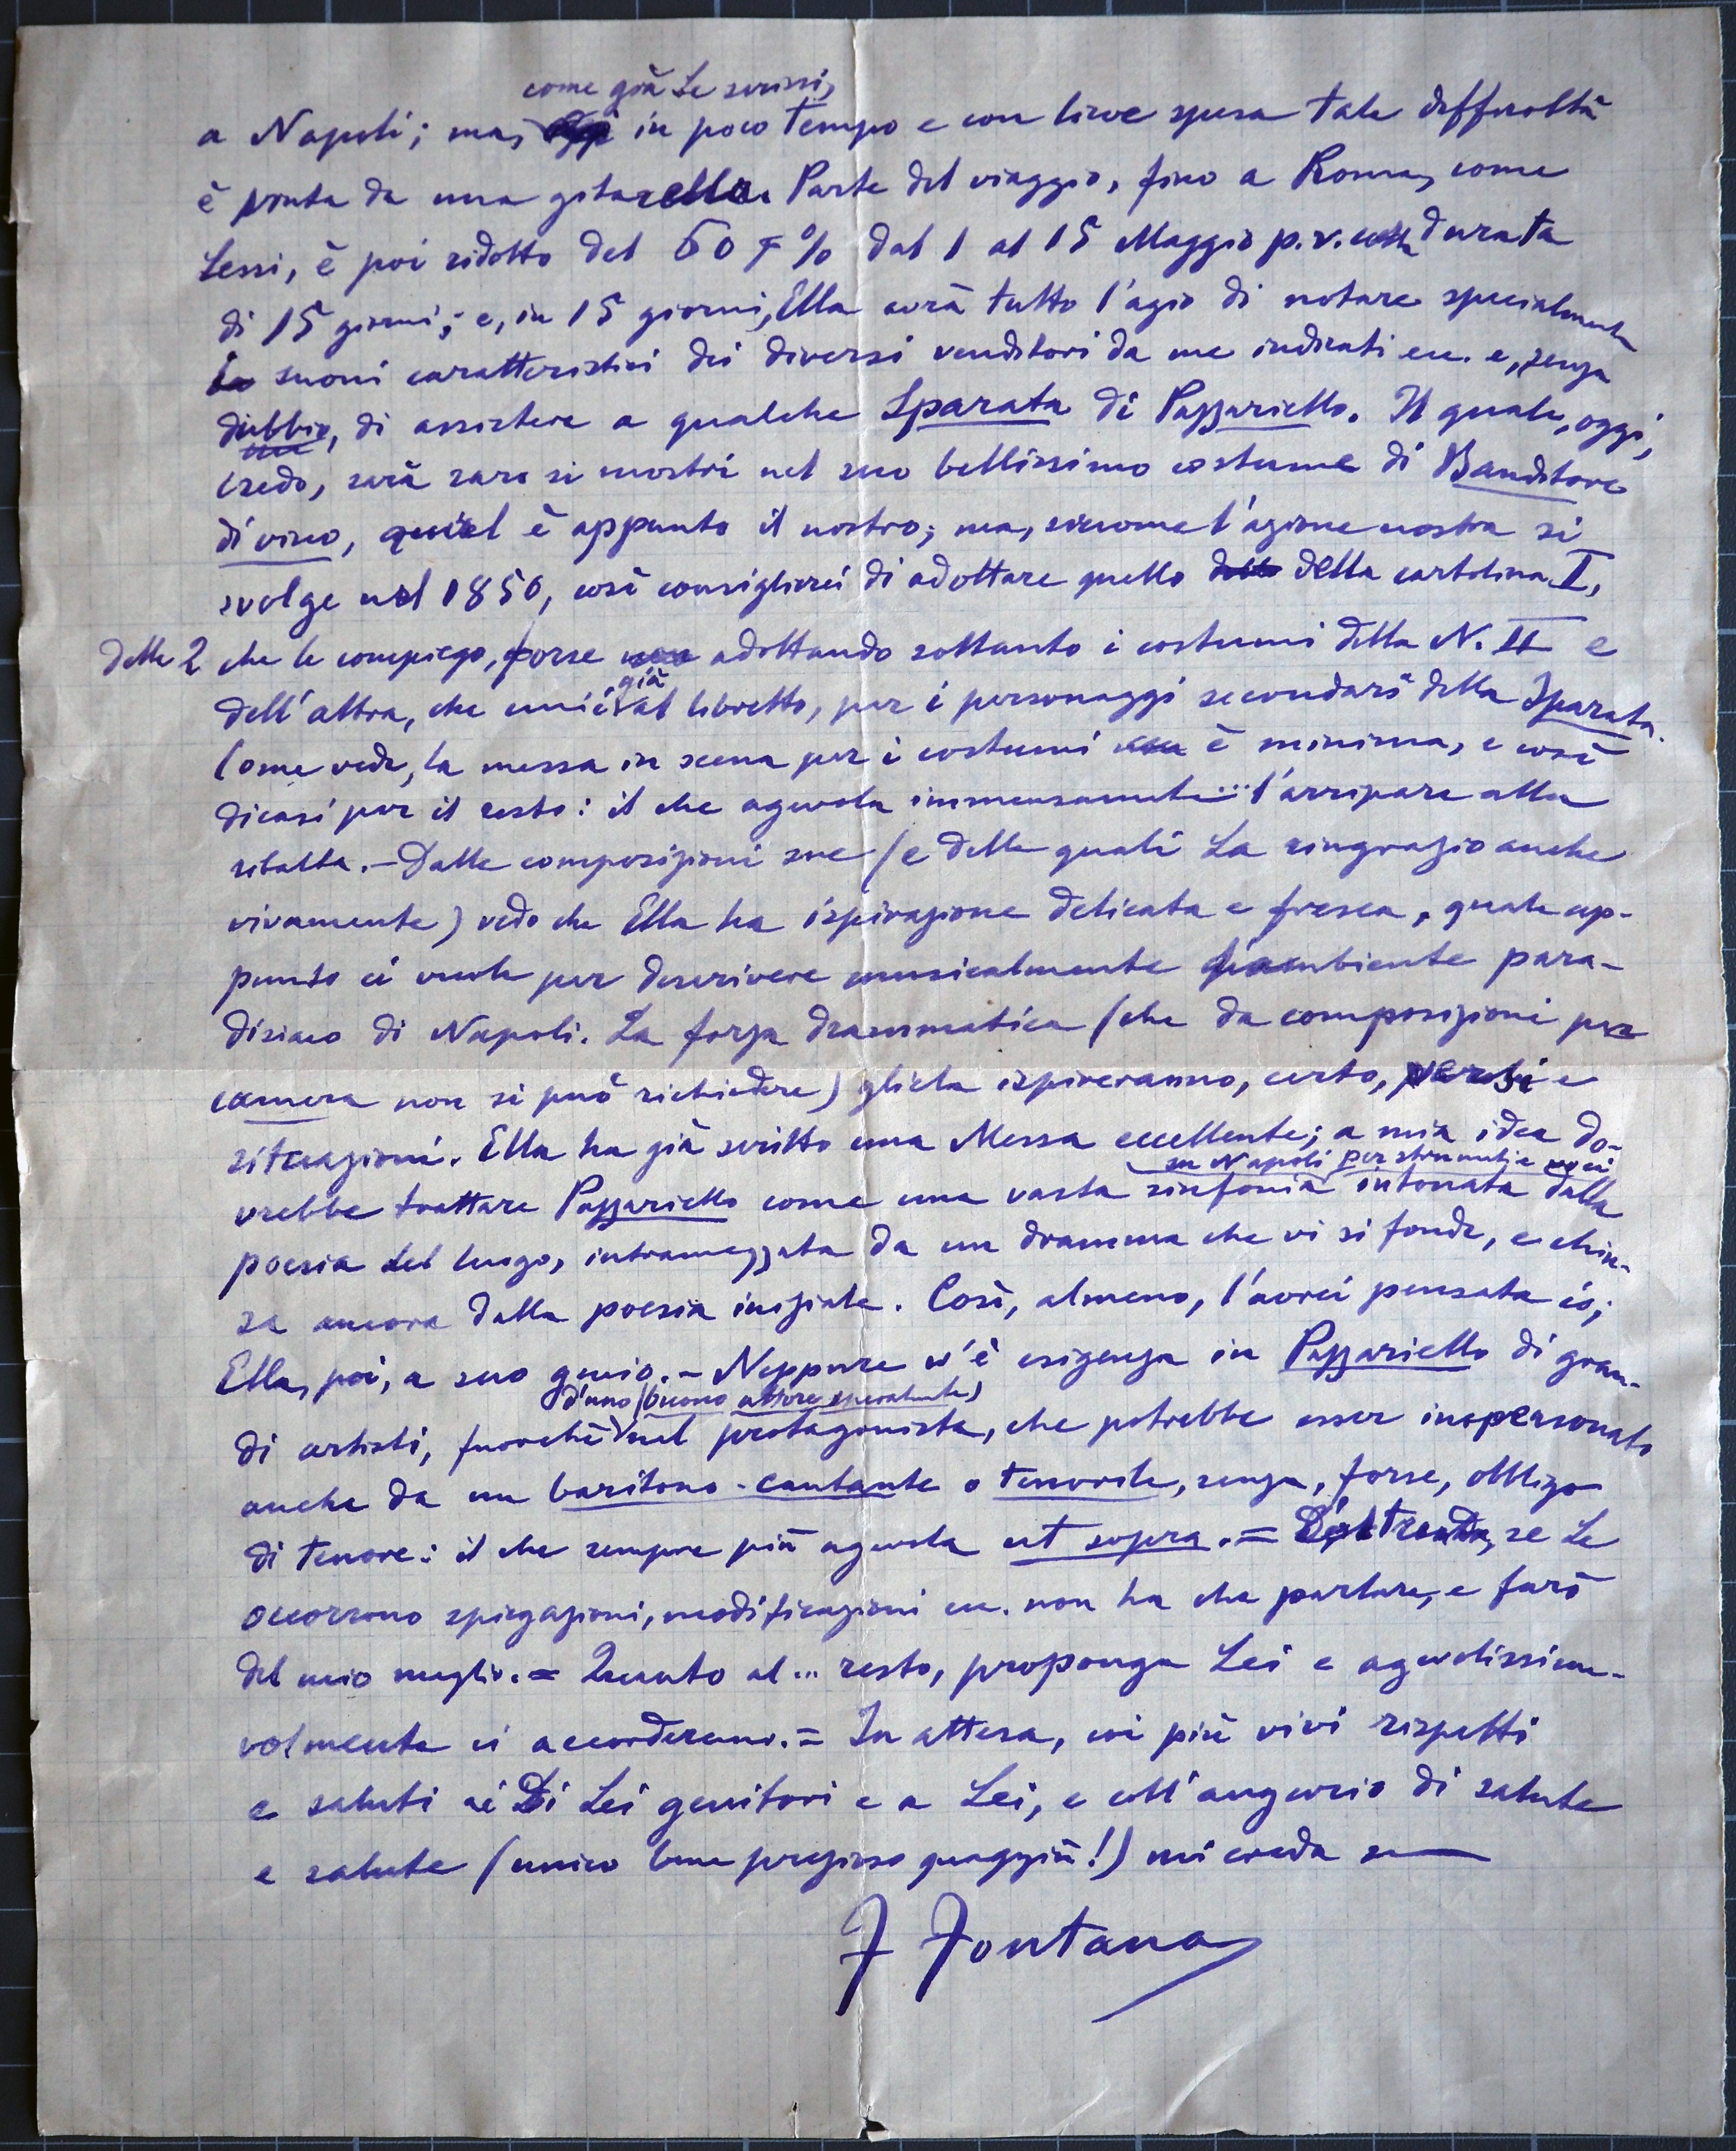 come già Le scrissi,
a Napoli; ma, in poco tempo e con lieve spesa tale difficoltà
è vinta da una gitarella. Parte del viaggio, fino a Roma, come
Lessi, è poi ridotto del 60 % dal 1 al 15 Maggio p.v. colla durata
di 15 giorni; e, in 15 giorni, Ella avrà tutto l'agio di notare specialmente
suoni caratteristici dei diversi venditori da me indicati ecc. e, senza
dubbio, di assistere a qualche Sparata di Pazzariello. Il quale, oggi,
credo, sarà raro si mostri nel suo bellissimo costume di Banditore
di vino, qual è appunto il nostro; ma, siccome l'azione nostra si
svolge nel 1850, così consiglierei di adottare quello della cartolina I,
delle 2 che le compiego, forse adottando soltanto i costumi della N. II e
già
dell'altra, che unii al libretto, per i personaggi secondarî della Sparata.
Come vede, la messa in scena per i costumi è minima, e così
dicasi per il resto: il che agevola immensamente... l'arripare alla
ribalta. - Dalle composizioni sue (e delle quali La ringrazio anche
vivamente) vedo che Ella ha ispirazione delicata e fresca, quale ap-
punto ci vuole per descrivere musicalmente l'ambiente para-
disiaco di Napoli. La forza drammatica (che da composizioni per
camera non si può richiedere) gliela ispireranno, certo, versi e
situazioni. Ella ha già scritto una Messa eccellente; a mia idea do-
su Napoli per strumenti e voci
vrebbe trattare Pazzariello come una vasta sinfonia intonata dalla
poesia del luogo, intramezzata da un dramma che vi si fonde, e chiu-
sa ancora dalla poesia iniziale. Così, almeno, l'avrei pensata io;
Ella, poi, a suo genio. - Neppure v'è esigenza in Pazzariello di gran-
d'uno (buono attore specialmente)
di artisti, fuorchè nel protagonista, che potrebbe esser impersonato
anche da un baritono-cantante o tenorile, senza, forse, obbligo
di tenore: il che sempre più agevola ut sopra. = se Le
occorrono spiegazioni, modificazioni ecc. non ha che parlare, e farò
del mio meglio. = Quanto al... resto, proponga Lei e agevolissima-
volmente ci accorderemo. = In attesa, coi più vivi rispetti
e saluti ai Di Lei genitori e a Lei, e coll'augurio di salute
e salute (unico bene prezioso quaggiù!) mi creda suo
F Fontana